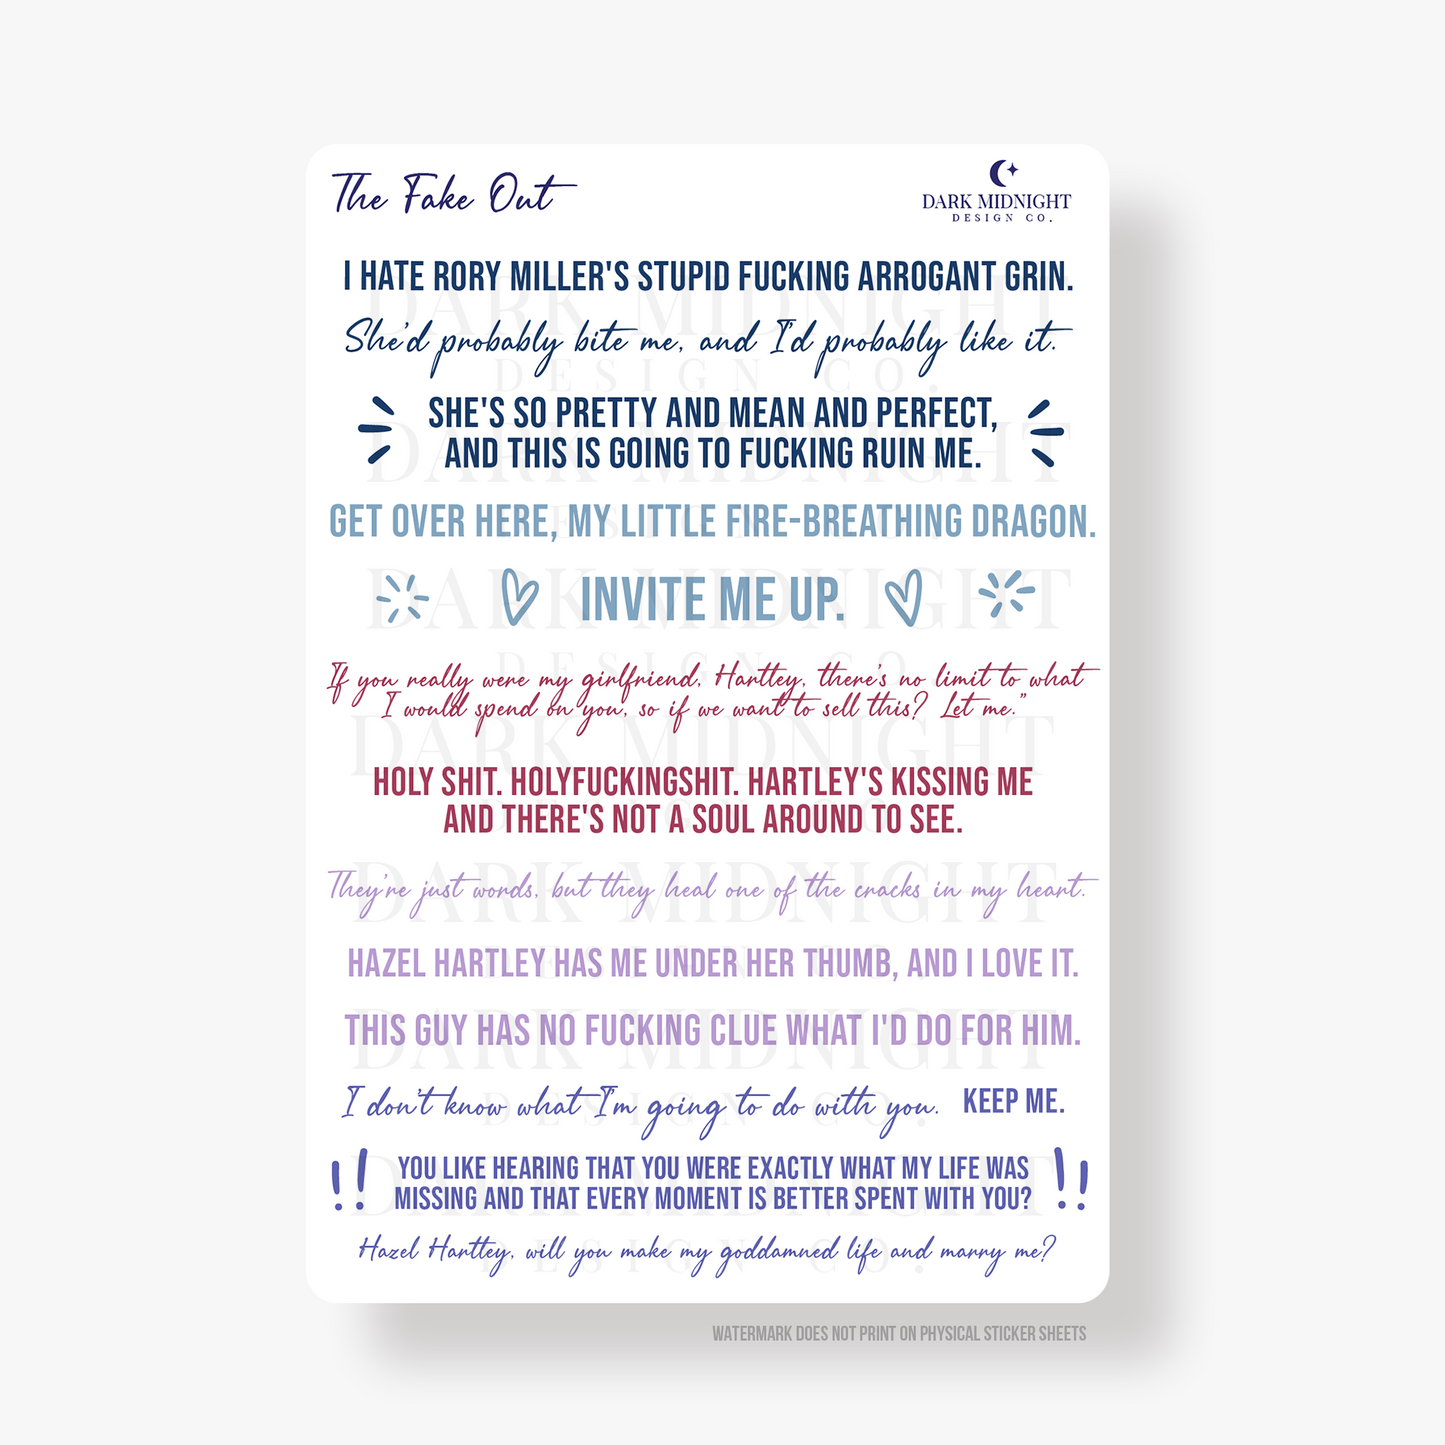 The Fake Out
DARK MIDNIGHT
DESIGN CO.
I HATE RORY MILLER'S STUPID FUCKING ARROGANT GRIN.
She'd probably bite me, and I'd probably like it.
SHE'S SO PRETTY AND MEAN AND PERFECT,
AND THIS IS GOING TO FUCKING RUIN ME.
GET OVER HERE, MY LITTLE FIRE-BREATHING DRAGON.
INVITE ME UP.
If you really were my girlfriend, Hartley, there's no limit to what
I would spend on you, so if we want to sell this? Let me."
HOLY SHIT. HOLYFUCKINGSHIT. HARTLEY'S KISSING ME
AND THERE'S NOT A SOUL AROUND TO SEE.
They're just words, but they heal one of the cracks in my heart.
HAZEL HARTLEY HAS ME UNDER HER THUMB, AND I LOVE IT.
THIS GUY HAS NO FUCKING CLUE WHAT I'D DO FOR HIM.
I don't know what I'm going to do with you. KEEP ME.
!! YOU LIKE HEARING THAT YOU WERE EXACTLY WHAT MY LIFE WAS !!
MISSING AND THAT EVERY MOMENT IS BETTER SPENT WITH YOU?
Hazel Hartley, will you make my goddamned life and marry me?
WATERMARK DOES NOT PRINT ON PHYSICAL STICKER SHEETS
DARK MIDNIGHT
DESIGN CO.
DARK MIDNIGHT
DESIGN CO.
DARK MIDNIGHT
DESIGN CO.
DARK MIDNIGHT
DESIGN CO.
DARK MIDNIGHT
DESIGN CO.
DARK MIDNIGHT
DESIGN CO.
DARK MIDNIGHT
DESIGN CO.